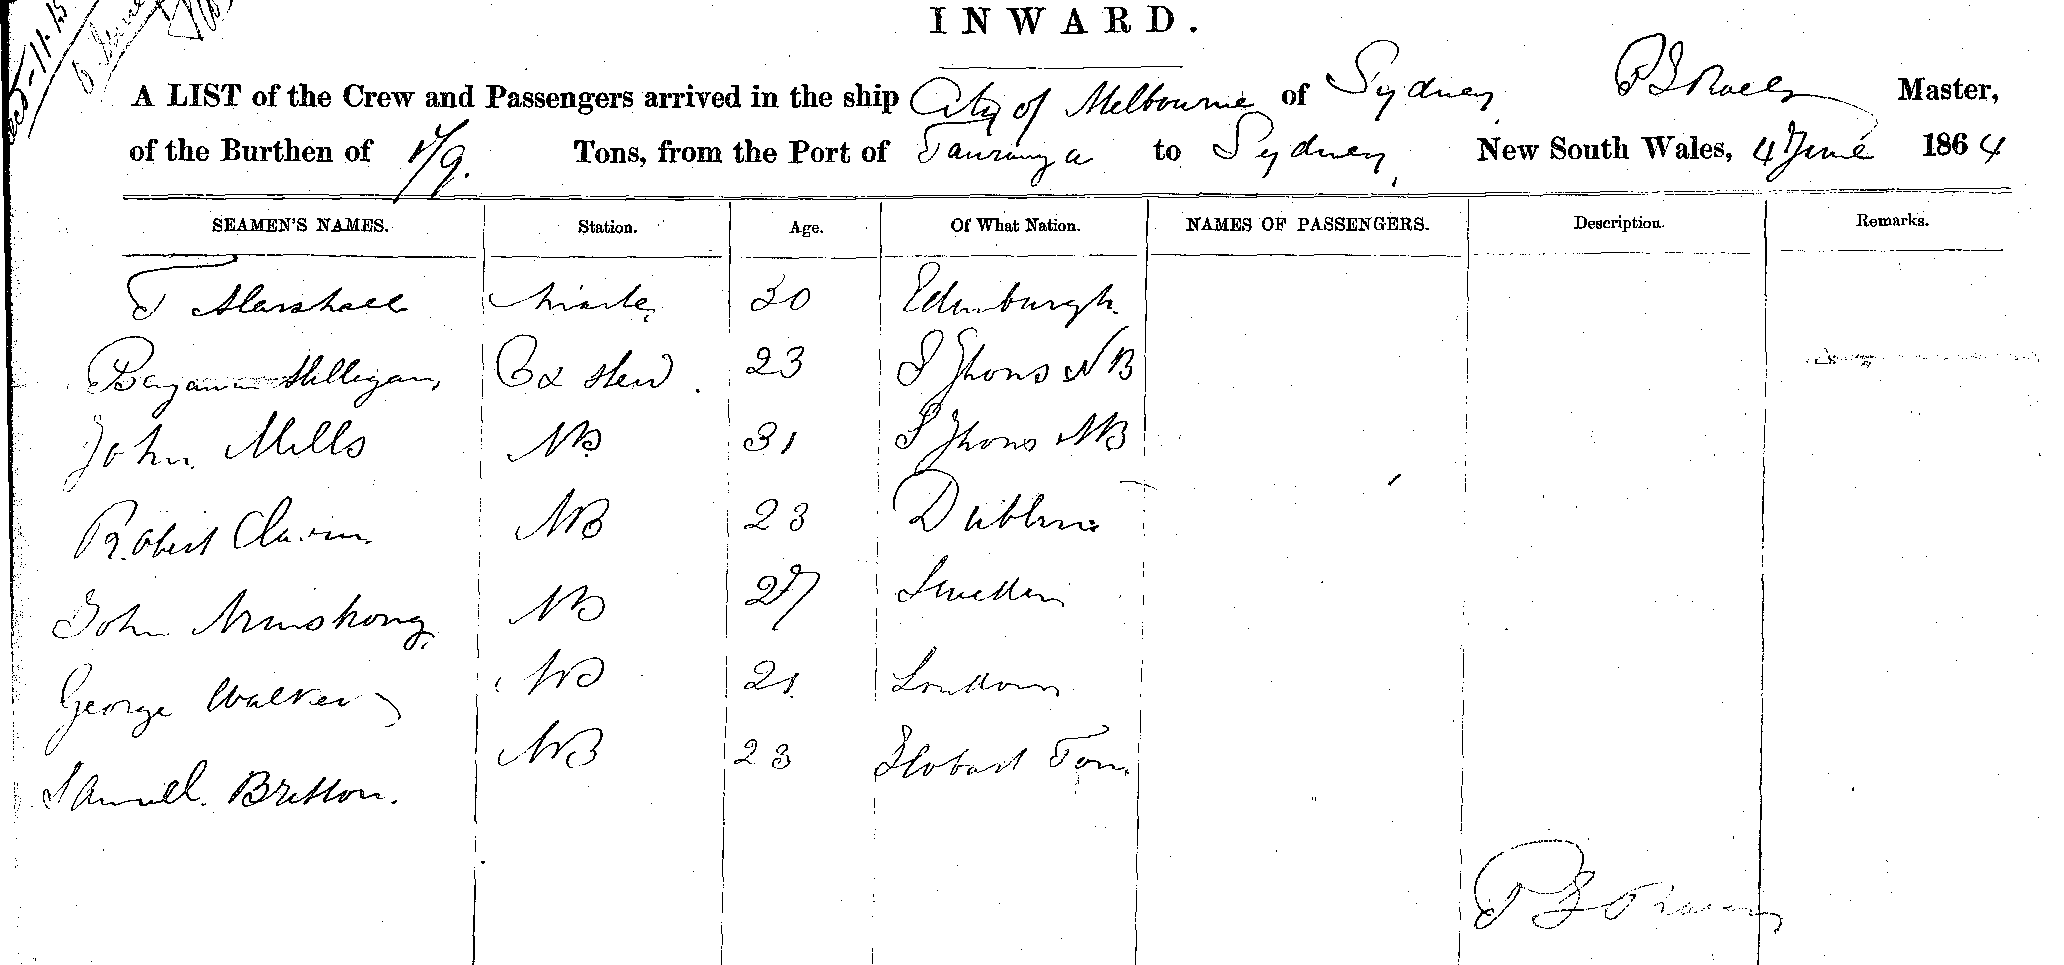 INWARD.
A LIST of the Crew and Passengers arrived in the ship City of Melbourne of Sydney Master,
of the Burthen of Tons, from the Port of Tauranga to Sydney, New South Wales, 4 June 1864
SEAMEN'S NAMES. Station. Age. Of What Nation. NAMES OF PASSENGERS. Description. Remarks.
T Marshall 30 Edinburgh.
Benjamin Milligan 23 S Jhons NB
John Mills AB 31 S Jhons NB
Robert AB 23 Dublin
John Armstrong AB 27 Sweden
George Walker AB 21 London
Samuel Britton. AB 23 Hobart Ton.